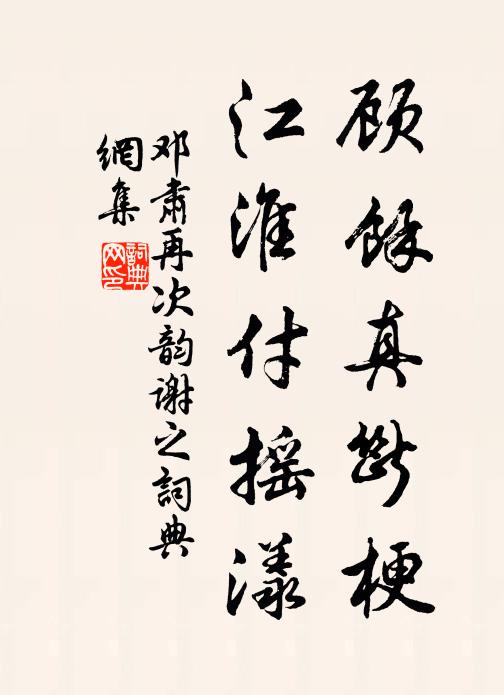 顾餘真断梗
江淮付摇漾
邓肃再次韵谢之詞典
網集
詞典網印